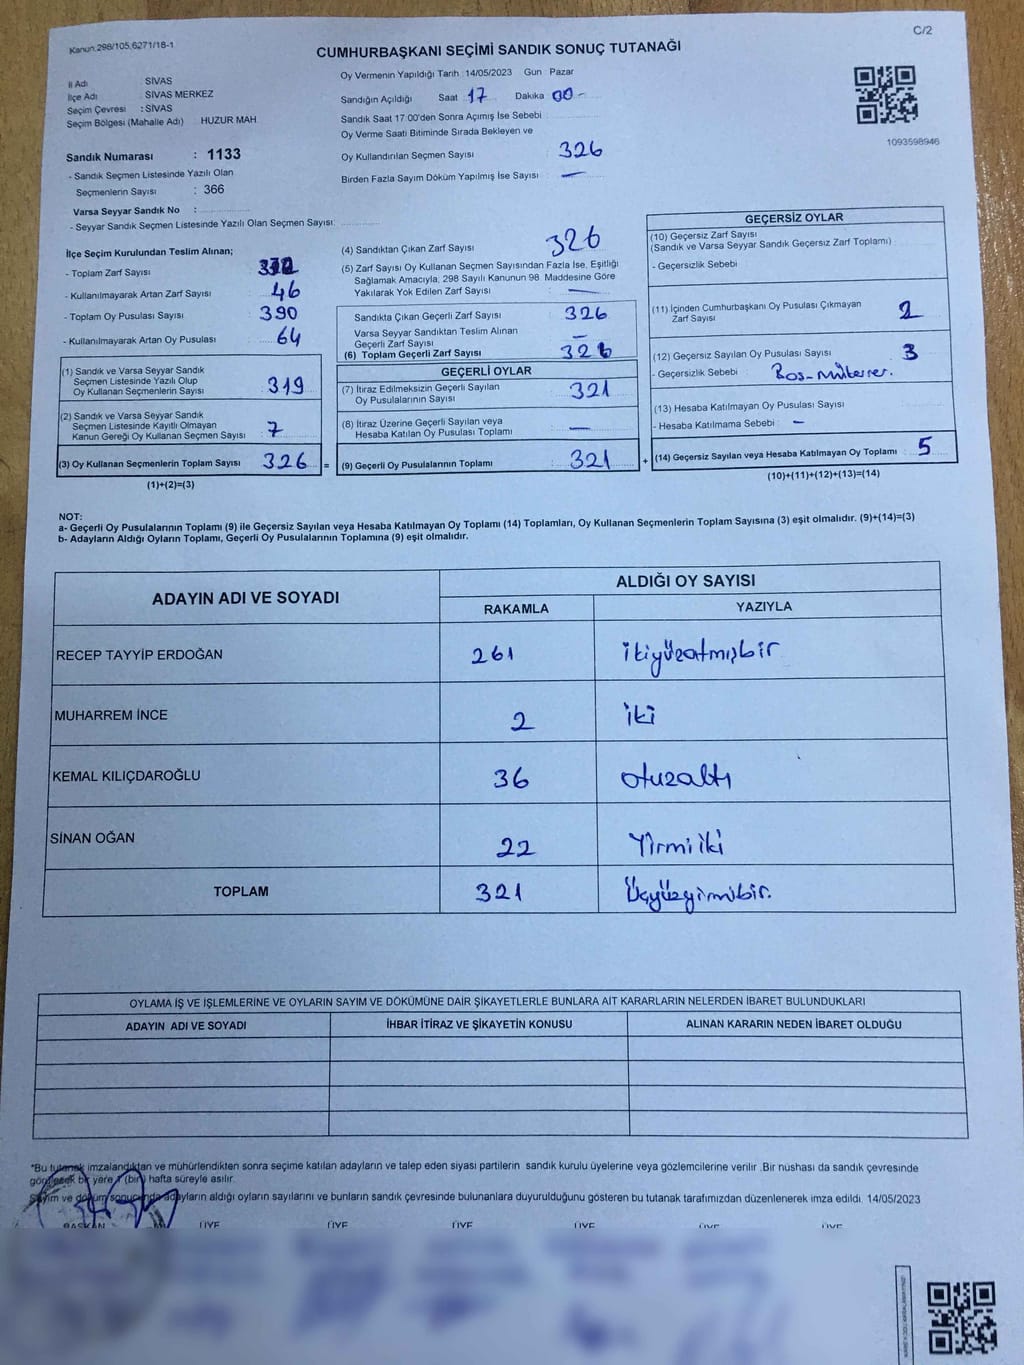 C/2
Kanun.298/105,6271/18-1
CUMHURBAŞKANI SEÇİMİ SANDIK SONUÇ TUTANAĞI
İl Adı : SİVAS
İlçe Adı : SİVAS MERKEZ
Seçim Çevresi : SİVAS
Seçim Bölgesi (Mahalle Adı) HUZUR MAH
Sandık Numarası : 1133
- Sandık Seçmen Listesinde Yazılı Olan
Seçmenlerin Sayısı : 366
Varsa Seyyar Sandık No :
- Seyyar Sandık Seçmen Listesinde Yazılı Olan Seçmen Sayısı:
Oy Vermenin Yapıldığı Tarih 14/05/2023 Gün Pazar
Sandığın Açıldığı Saat 17 Dakika 00-
Sandık Saat 17:00'den Sonra Açımış İse Sebebi
Oy Verme Saati Bitiminde Sırada Bekleyen ve
Oy Kullandırılan Seçmen Sayısı 326
Birden Fazla Sayım Döküm Yapılmış İse Sayısı —
1093598946
İlçe Seçim Kurulundan Teslim Alınan;
- Toplam Zarf Sayısı
- Kullanılmayarak Artan Zarf Sayısı 46
- Toplam Oy Pusulası Sayısı 390
- Kullanılmayarak Artan Oy Pusulası 64
(1) Sandık ve Varsa Seyyar Sandık
Seçmen Listesinde Yazılı Olup
Oy Kullanan Seçmenlerin Sayısı 319
(2) Sandık ve Varsa Seyyar Sandık
Seçmen Listesinde Kayıtlı Olmayan
Kanun Gereği Oy Kullanan Seçmen Sayısı : 7
(3) Oy Kullanan Seçmenlerin Toplam Sayısı 326 =
(1)+(2)=(3)
(4) Sandıktan Çıkan Zarf Sayısı 326
(5) Zarf Sayısı Oy Kullanan Seçmen Sayısından Fazla İse, Eşitliği
Sağlamak Amacıyla, 298 Sayılı Kanunun 98. Maddesine Göre
Yakılarak Yok Edilen Zarf Sayısı : —
Sandıkta Çıkan Geçerli Zarf Sayısı 326
Varsa Seyyar Sandıktan Teslim Alınan
Geçerli Zarf Sayısı —
(6) Toplam Geçerli Zarf Sayısı 326
GEÇERLİ OYLAR
(7) İtiraz Edilmeksizin Geçerli Sayılan
Oy Pusulalarının Sayısı 321
(8) İtiraz Üzerine Geçerli Sayılan veya
Hesaba Katılan Oy Pusulası Toplamı —
(9) Geçerli Oy Pusulalarının Toplamı 321 +
GEÇERSİZ OYLAR
(10) Geçersiz Zarf Sayısı
(Sandık ve Varsa Seyyar Sandık Geçersiz Zarf Toplamı)
- Geçersizlik Sebebi
(11) İçinden Cumhurbaşkanı Oy Pusulası Çıkmayan
Zarf Sayısı 2
(12) Geçersiz Sayılan Oy Pusulası Sayısı 3
- Geçersizlik Sebebi : Boş-Mükerrer.
(13) Hesaba Katılmayan Oy Pusulası Sayısı
- Hesaba Katılmama Sebebi : —
(14) Geçersiz Sayılan veya Hesaba Katılmayan Oy Toplamı 5
(10)+(11)+(12)+(13)=(14)
NOT:
a- Geçerli Oy Pusulalarının Toplamı (9) ile Geçersiz Sayılan veya Hesaba Katılmayan Oy Toplamı (14) Toplamları, Oy Kullanan Seçmenlerin Toplam Sayısına (3) eşit olmalıdır. (9)+(14)=(3)
b- Adayların Aldığı Oyların Toplamı, Geçerli Oy Pusulalarının Toplamına (9) eşit olmalıdır.
ADAYIN ADI VE SOYADI ALDIĞI OY SAYISI
RAKAMLA YAZIYLA
RECEP TAYYİP ERDOĞAN 261 ikiyüzatmışbir
MUHARREM İNCE 2 iki
KEMAL KILIÇDAROĞLU 36 otuzaltı
SİNAN OĞAN 22 Yirmiiki
TOPLAM 321 Üçyüzyirmibir.
OYLAMA İŞ VE İŞLEMLERİNE VE OYLARIN SAYIM VE DÖKÜMÜNE DAİR ŞİKAYETLERLE BUNLARA AİT KARARLARIN NELERDEN İBARET BULUNDUKLARI
ADAYIN ADI VE SOYADI İHBAR İTİRAZ VE ŞİKAYETİN KONUSU ALINAN KARARIN NEDEN İBARET OLDUĞU
*Bu tutanak imzalandıktan ve mühürlendikten sonra seçime katılan adayların ve talep eden siyasi partilerin sandık kurulu üyelerine veya gözlemcilerine verilir .Bir nüshası da sandık çevresinde
görülecek bir yere 1 (bir) hafta süreyle asılır.
Sayım ve döküm sonucunda adayların aldığı oyların sayılarını ve bunların sandık çevresinde bulunanlara duyurulduğunu gösteren bu tutanak tarafımızdan düzenlenerek imza edildi. 14/05/2023
BAŞKAN ÜYE ÜYE ÜYE ÜYE ÜYE ÜYE